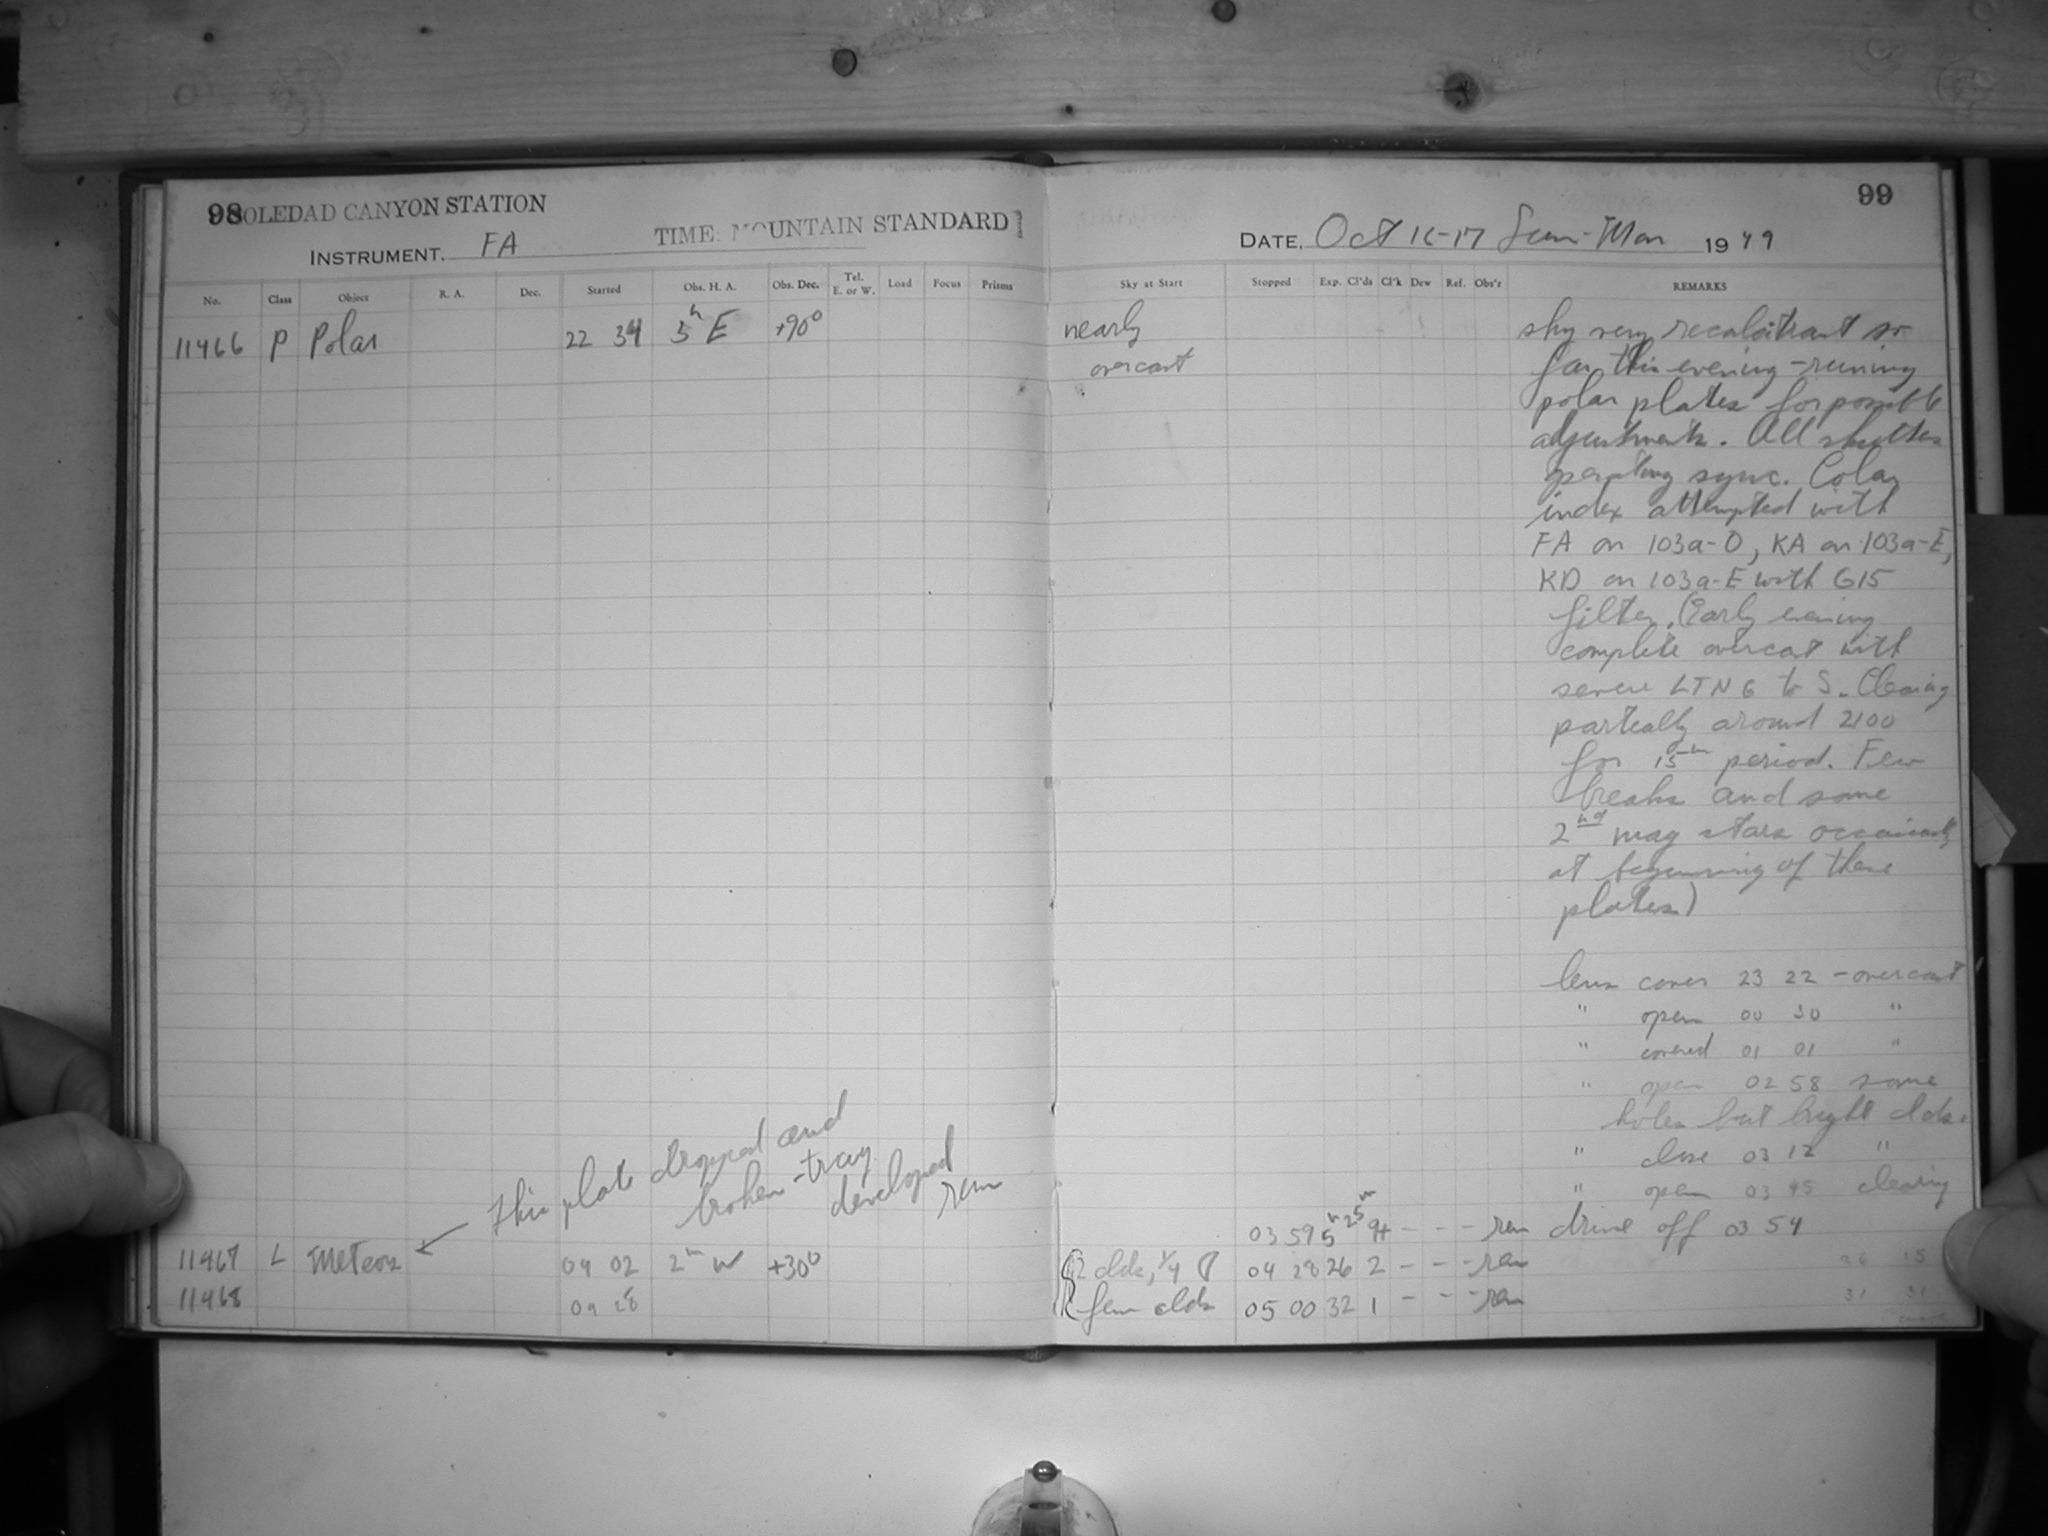 98 SOLEDAD CANYON STATION
TIME: MOUNTAIN STANDARD
INSTRUMENT. FA
No. Class Object R. A. Dec. Started Obs. H. A. Obs. Dec. Tel. E. or W. Load Focus Prisms
11466 P Polar 22 34 5h E +90°
This plate dropped and
broken - tray
developed
rem
11467 L Meteors 04 02 2h W +30°
11468 04 28
99
DATE. Oct 16-17 Sun-Mon 1949
Sky at Start Stopped Exp. Cl'ds Cl'k Dew Ref. Obs'r REMARKS
nearly
overcast
sky very recalcitrant so
far this evening - running
polar plates for possible
adjustments. All shutters
operating sync. Color
index attempted with
FA on 103a-O, KA on 103a-E,
KD on 103a-E with G15
filter. (Early evening
complete overcast with
severe LTNG to S. Clearing
partially around 2100
for 15m period. Few
breaks and some
2nd mag stars occasionally
at beginning of these
plates)
lens cover 23 22 - overcast
" open 00 30 "
" covered 01 01 "
" open 02 58 some
holes but bright clds.
" close 03 12 "
" open 03 45 clearing
03 59 5h 25m 9+ - - - rem drive off 03 54
2 clds, 1/4 04 28 26 2 - - - rem
few clds 05 00 32 1 - - - rem